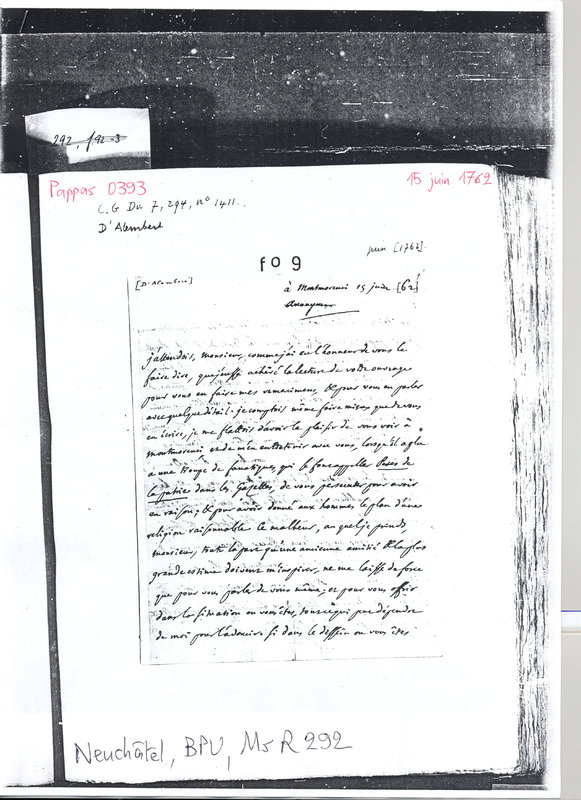 292, f 92-3
Pappas 0393
15 juin 1762
C.G Du 7, 294, n° 1411.
D'Alembert
juin [1762].
fo 9
[D'Alembert]
à Montmorenci 15 juin [62]
j'attendois, monsieur, comme j'ai eu l'honneur de vous le
faire dire, que j'eusse achevé la lecture de votre ouvrage
pour vous en faire mes remercimens, & pour vous en parler
avec quelque détail. je comptois même faire mieux que de vous
en écrire, je me flattois d'avoir le plaisir de vous voir à
montmorenci et de m'en entretenir avec vous, lorsqu'il a plu
a une troupe de fanatiques, qui se font appeller Peres de
la patrie dans les gazettes, de vous persecuter pour avoir
eu raison, & pour avoir donné aux hommes le plan d'une
religion raisonnable. Ce malheur, auquel je prends,
monsieur, toute la part qu'une ancienne amitié & la plus
grande estime doivent m'inspirer, ne me laisse de force
que pour vous parler de vous même, et pour vous offrir
dans la situation ou vous êtes, tout ce qui peut dépendre
de moi pour l'adoucir. Si dans le dessein ou vous êtes
Neuchâtel, BPU, Ms R 292